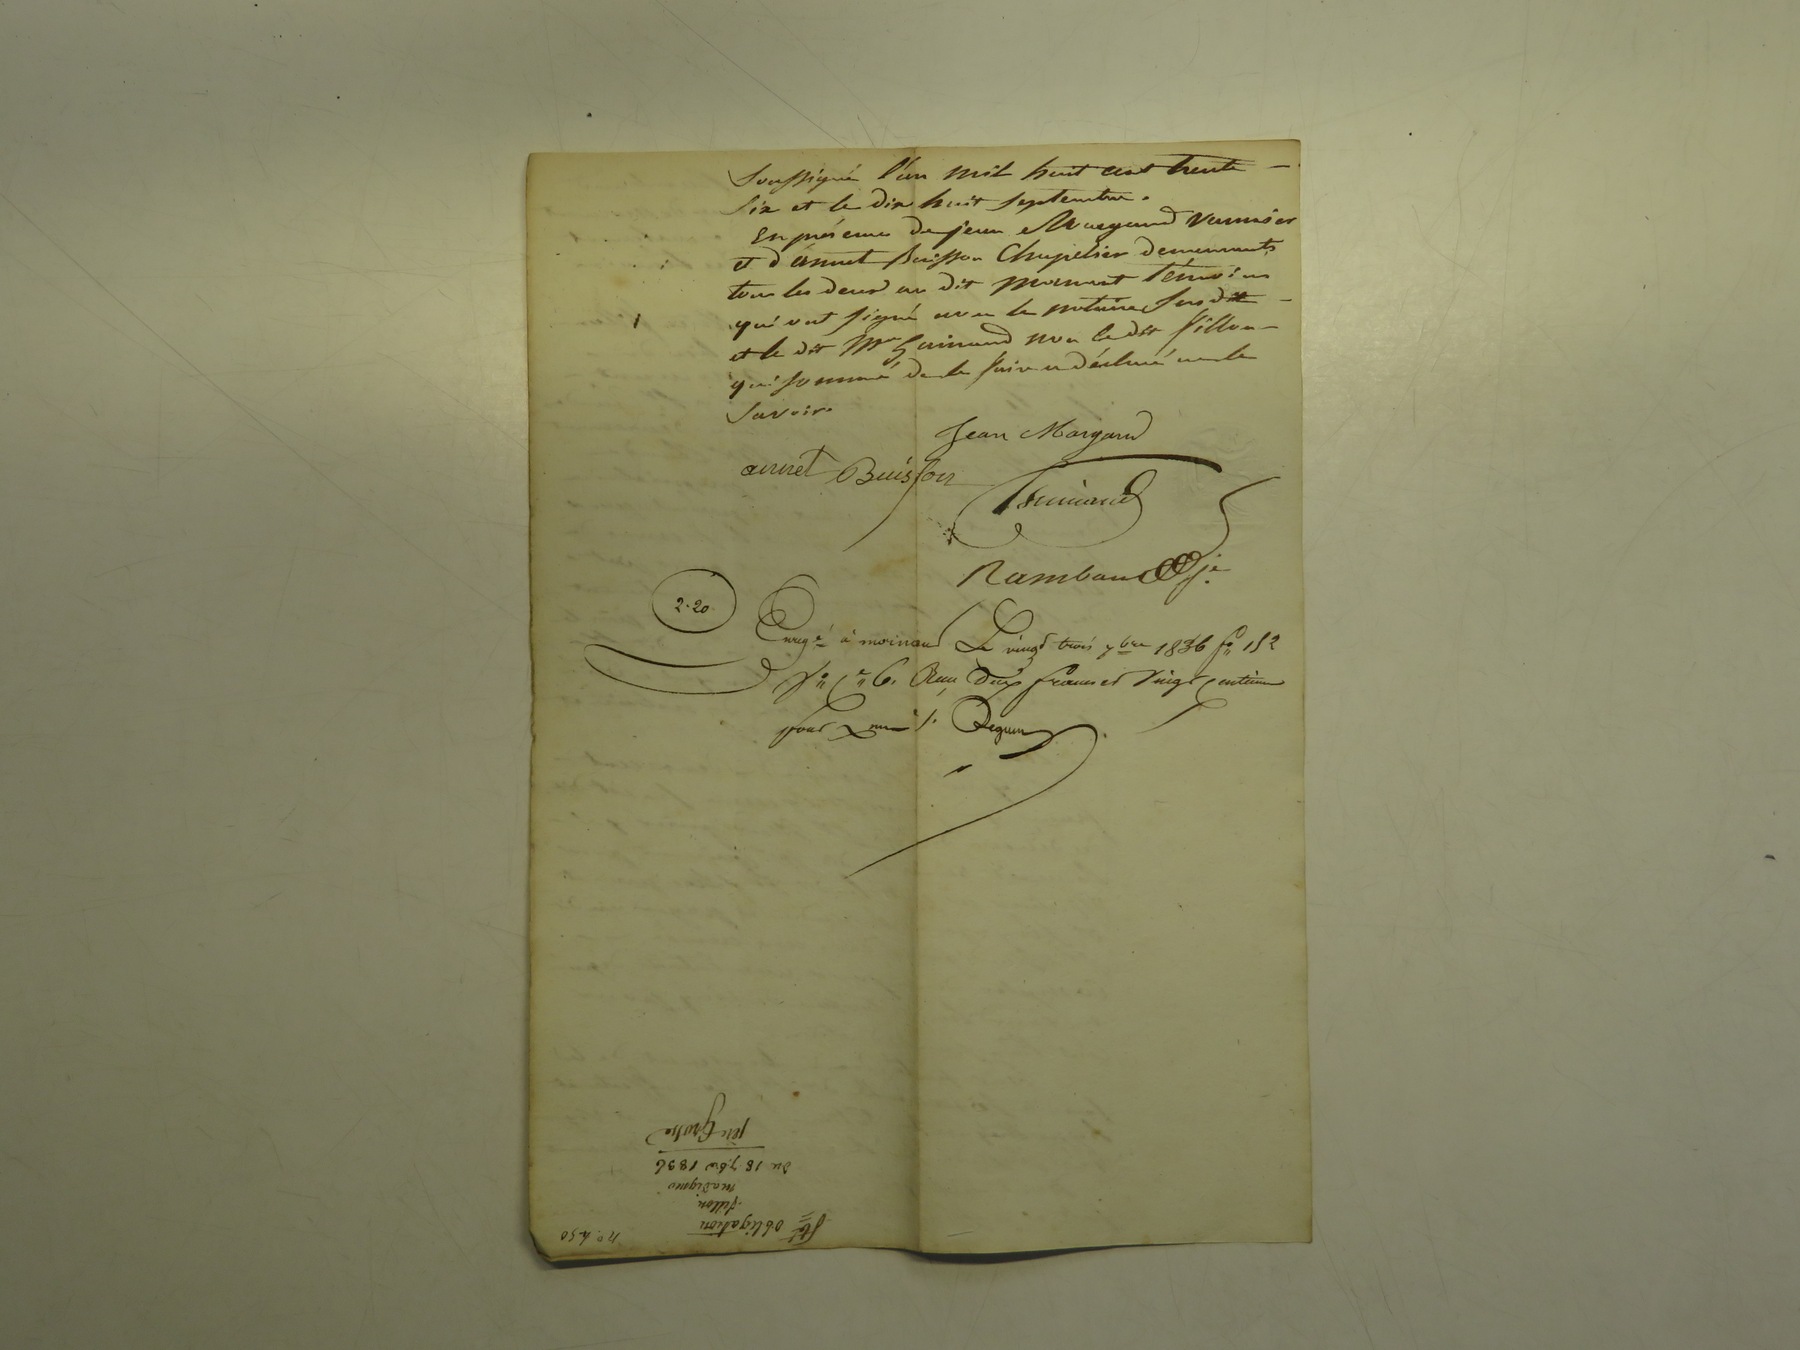 soussigné l'an mil huit cent trente –
six et le dix huit septembre.
En présence de jean Margand vannier
et d'annet Buisson Chapelier demeurants
tous les deux au dit mornant témoins
qui ont signé avec le notaire susdit –
et le dit Mr non le dit fillon –
qui sommé de le faire a déclaré ne le
savoir.
Jean Margand
annet Buisson
Rambaud
2.20
Enregé à mornant Le vingt trois 7bre 1836 fo 152
Vo Ce 6. Reçu deux francs vingt centimes
pour Xme /. Peguin
No 450
obligation
fillon
du 18 7bre 1836
pre Grosse